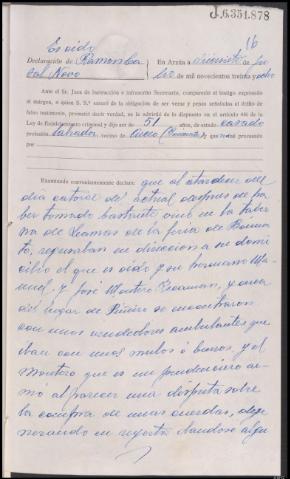 J.6.351.878
16
Es oido
Declaración de Ramón
del Novo
En Arzúa a diecisiete de Ju
lio de mil novecientos treinta y ocho
Ante el Sr. Juez de Instrucción e infrascrito Secretario, comparece el testigo expresado
al margen, a quien S. S.ª enteró de la obligación de ser veraz y penas señaladas al delito de
falso testimonio, prometió decir verdad, y a tenor de lo dispuesto en el artículo 436 de la
Ley de Enjuiciamiento criminal y dijo ser de 51 años, de estado casado
profesión labrador vecino de y que no está procesado
por
Examinado convenientemente declara: que al atardecer del
día catorce del actual despues de ha
ber tomado bastante vino en la taber
na de de la feria de
to, regresaban en direccion a su domi
cilio el que es oido y su hermano Ma
nuel y José Montero y cerca
del lugar de se encontraron
con unos vendedores ambulantes que
iban con unos mulos ó burros, y el
Montero que es un pendenciero ar
mó al parecer una disputa sobre
la compra de unas cuerdas, dege
nerando en reyerta dandose algu